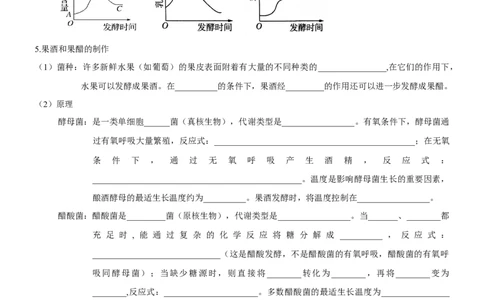 含量
A
C
O
发酵时间
乳
O
发酵时间
O
发酵时间
5.果酒和果醋的制作
（1）菌种：许多新鲜水果（如葡萄）的果皮表面附着有大量的不同种类的________________,在它们的作用下，
水果可以发酵成果酒。在__________的条件下，果酒经_________的作用还可以进一步发酵成果醋。
（2）原理
酵母菌：是一类单细胞______菌（真核生物），代谢类型是_________________。有氧条件下，酵母菌通
过有氧呼吸大量繁殖，反应式：_______________________________________________；在无氧
条 件 下 ， 通 过 无 氧 呼 吸 产 生 酒 精 ， 反 应 式 ：
_________________________________________________。温度是影响酵母菌生长的重要因素，
酿酒酵母的最适生长温度约为__________。果酒发酵时，将温度控制在_________________。
醋酸菌：醋酸菌是_________菌（原核生物），代谢类型是_________________。当______、________都
充 足 时 , 能 通 过 复 杂 的 化 学 反 应 将 糖 分 解 成 __________ ， 反 应 式 ：
______________________________（这是醋酸发酵，不是醋酸菌的有氧呼吸，醋酸菌的有氧呼
吸同酵母菌）；当缺少糖源时，则直接将________转化为________，再将________变为
________,反应式：______________________。多数醋酸菌的最适生长温度为__________